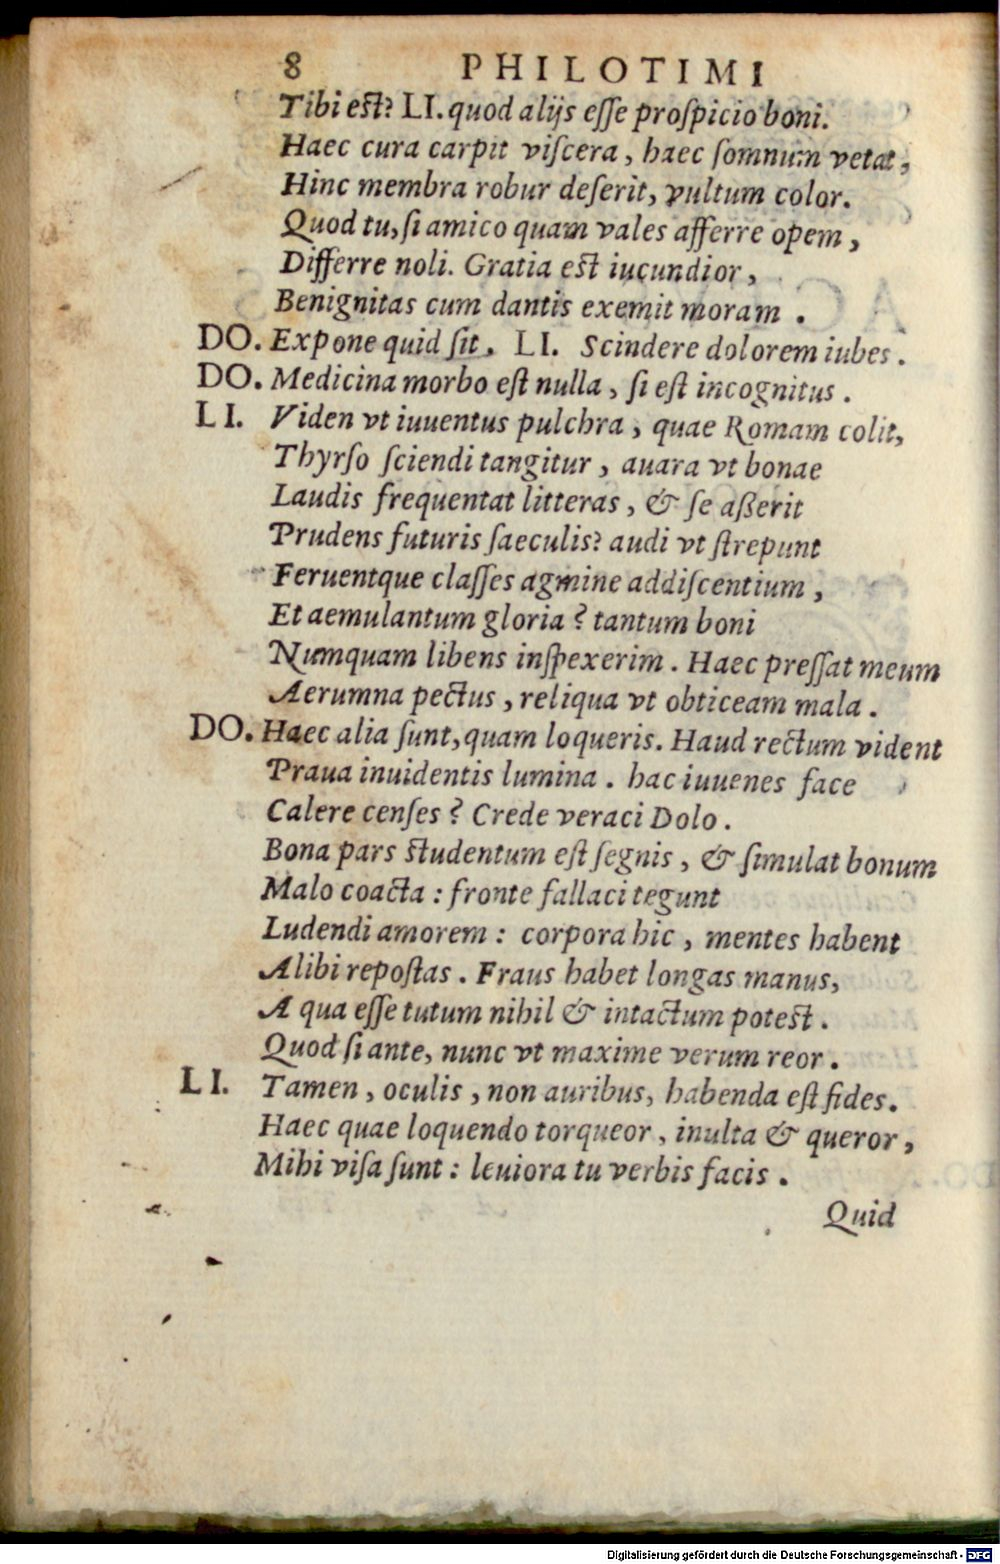 8 PHILOTIMI
Tibi est? LI. quod alijs eſſe proſpicio boni.
Haec cura carpit viſcera, haec ſomnum vetat,
Hinc membra robur deſerit, vultum color.
Quod tu, ſi amico quam vales afferre opem,
Differre noli. Gratia est iucundior,
Benignitas cum dantis exemit moram.
DO. Expone quid ſit. LI. Scindere dolorem iubes.
DO. Medicina morbo eſt nulla, ſi eſt incognitus.
LI. Viden vt iuuentus pulchra, quae Romam colit,
Thyrſo ſciendi tangitur, auara vt bonae
Laudis frequentat litteras, & ſe aßerit
Prudens futuris ſaeculis? audi vt ſtrepunt
Feruentque claſſes agmine addiſcentium,
Et aemulantum gloria? tantum boni
Numquam libens inſpexerim. Haec preſſat meum
Aerumna pectus, reliqua vt obticeam mala.
DO. Haec alia ſunt, quam loqueris. Haud rectum vident
Praua inuidentis lumina. hac iuuenes face
Calere cenſes? Crede veraci Dolo.
Bona pars studentum eſt ſegnis, & ſimulat bonum
Malo coacta: fronte fallaci tegunt
Ludendi amorem: corpora hic, mentes habent
Alibi repoſtas. Fraus habet longas manus,
A qua eſſe tutum nihil & intactum potest.
Quod ſi ante, nunc vt maxime verum reor.
LI. Tamen, oculis, non auribus, habenda eſt fides.
Haec quae loquendo torqueor, inulta & queror,
Mihi viſa ſunt: leuiora tu verbis facis.
Quid
Digitalisierung gefördert durch die Deutsche Forschungsgemeinschaft - DFG